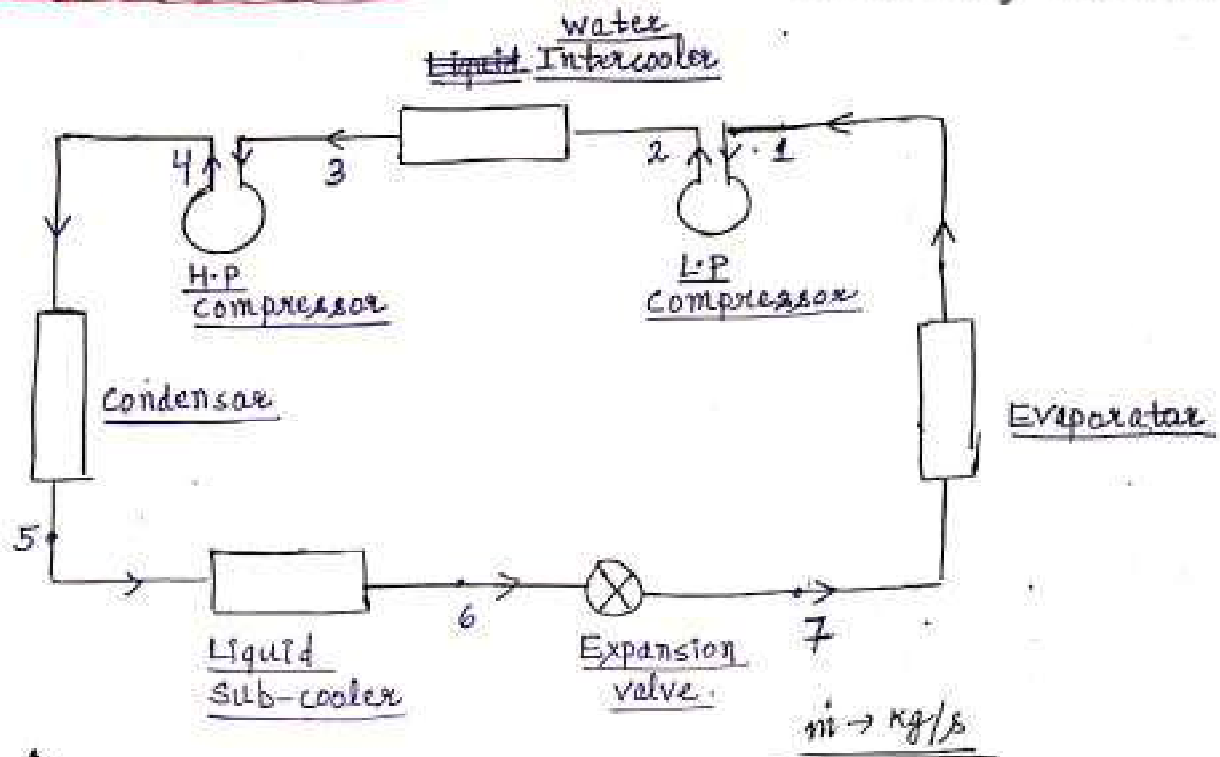 Water
Liquid Intercooler
4
3
2
1
H.P
Compressor
L.P
Compressor
Condensar
Evaporatar
5
6
7
Liquid
Sub-cooler
Expansion
valve.
ṁ → kg/s